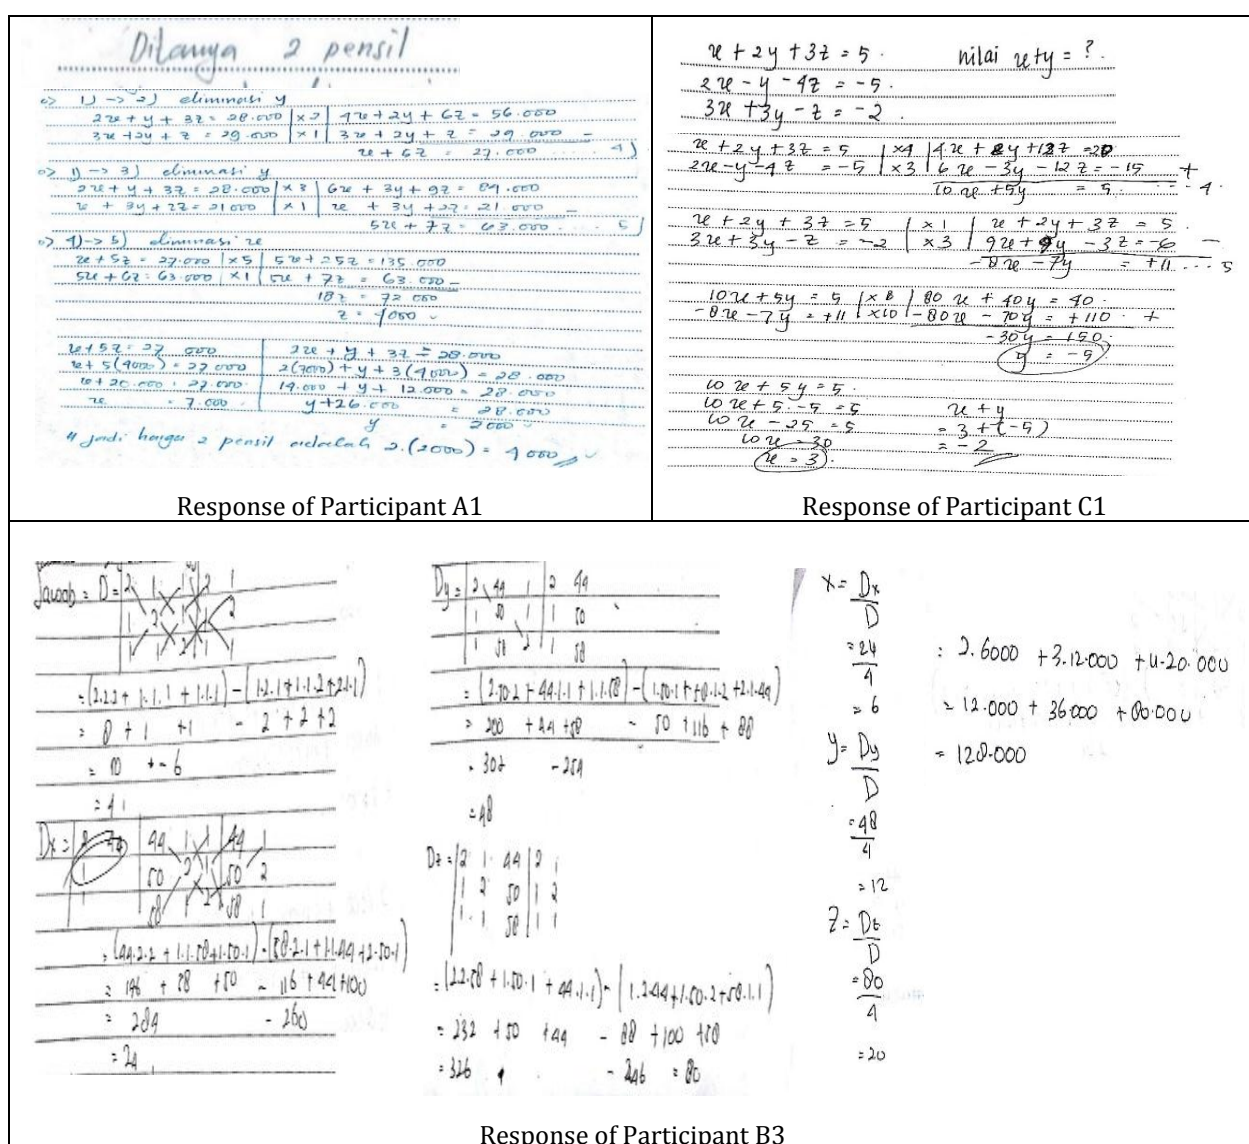 Ditanya 2 pensil
1) -> 2) eliminasi y
2x + y + 3z = 28.000 | x2 | 4x + 2y + 6z = 56.000
3x + 2y + z = 29.000 | x1 | 3x + 2y + z = 29.000 -
x + 6z = 27.000 .... 4)
1) -> 3) eliminasi y
2x + y + 3z = 28.000 | x3 | 6x + 3y + 9z = 84.000
x + 3y + 2z = 21000 | x1 | x + 3y + 2z = 21.000 -
5x + 7z = 63.000 .... 5)
4) -> 5) eliminasi x
x + 5z = 27.000 | x5 | 5x + 25z = 135.000
5x + 6z = 63.000 | x1 | 5x + 7z = 63.000 -
18z = 72.000
z = 4000
x + 5z = 27.000
x + 5(4000) = 27000
x + 20.000 = 27.000
x = 7.000
2x + y + 3z = 28.000
2(7000) + y + 3(4000) = 28.000
14.000 + y + 12.000 = 28.000
y + 26.000 = 28.000
y = 2000
" jadi harga 2 pensil adalah 2.(2000) = 4000 //
Response of Participant A1
x + 2y + 3z = 5. nilai x+y = ?.
2x - y - 4z = -5.
3x + 3y - z = -2.
x + 2y + 3z = 5 | x4 | 4x + 8y + 12z = 20
2x - y - 4z = -5 | x3 | 6x - 3y - 12z = -15 +
10x + 5y = 5. ... 4.
x + 2y + 3z = 5 | x1 | x + 2y + 3z = 5
3x + 3y - z = -2 | x3 | 9x + 9y - 3z = -6 -
-8x - 7y = +11 ... 5
10x + 5y = 5 | x8 | 80x + 40y = 40.
-8x - 7y = +11 | x10 | -80x - 70y = +110. +
-30y = 150.
y = -5
10x + 5y = 5.
10x + 5.-5 = 5
10x - 25 = 5
10x = 30
x = 3.
x + y
= 3 + (-5)
= -2
Response of Participant C1
Jawab = D = | 2 1 1 | 2 1
1 2 1 | 1 2
1 1 2 | 1 1
= (2.2.2 + 1.1.1 + 1.1.1) - (1.2.1 + 1.1.2 + 2.1.1)
= 8 + 1 + 1 - 2 + 2 + 2
= 10 + - 6
= 4
Dx = | 44 1 1 | 44 1
50 2 1 | 50 2
58 1 2 | 58 1
= (44.2.2 + 1.1.58 + 1.50.1) - (58.2.1 + 1.1.44 + 2.50.1)
= 176 + 58 + 50 - 116 + 44 + 100
= 284 - 260
= 24
Dy = | 2 44 1 | 2 44
1 50 1 | 1 50
1 58 2 | 1 58
= (2.50.2 + 44.1.1 + 1.1.58) - (1.50.1 + 58.1.2 + 2.1.44)
= 200 + 44 + 58 - 50 + 116 + 88
= 302 - 254
= 48
Dz = | 2 1 44 | 2 1
1 2 50 | 1 2
1 1 58 | 1 1
= (2.2.58 + 1.50.1 + 44.1.1) - (1.2.44 + 1.50.2 + 58.1.1)
= 232 + 50 + 44 - 88 + 100 + 58
= 326 - 246 = 80
x = Dx / D
= 24 / 4
= 6
y = Dy / D
= 48 / 4
= 12
z = Dz / D
= 80 / 4
= 20
= 2.6000 + 3.12.000 + 4.20.000
= 12.000 + 36.000 + 80.000
= 128.000
Response of Participant B3